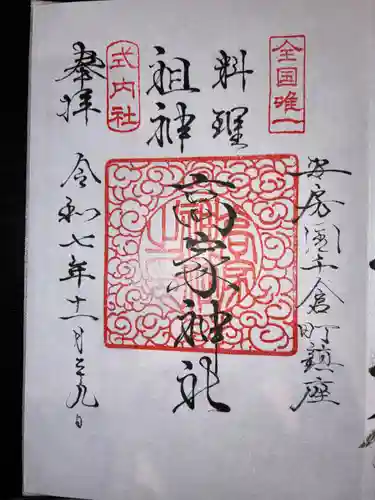 全国唯一
料理
祖神
式内社
奉拝
安房国千倉町鎮座
高家神社
令和七年十一月二十九日